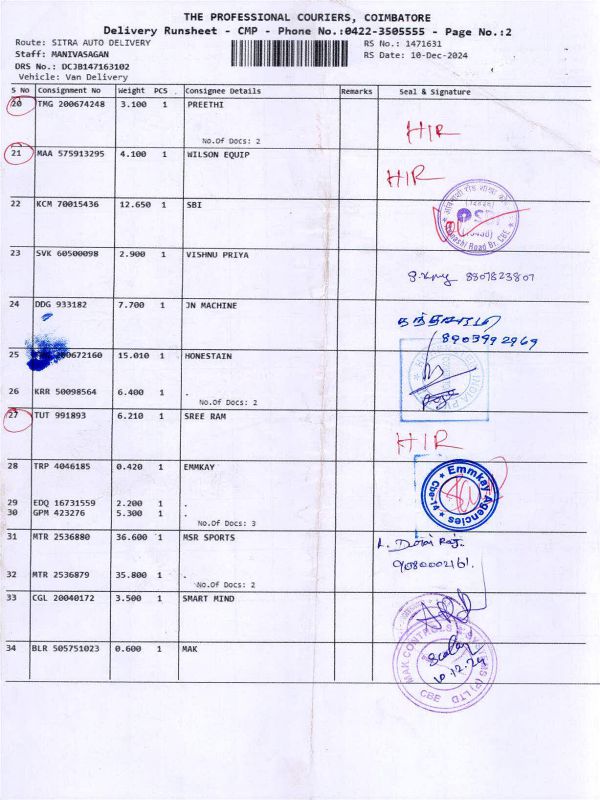 THE PROFESSIONAL COURIERS, COIMBATORE
Delivery Runsheet - CMP - Phone No.:0422-3505555 - Page No.:2
Route: SITRA AUTO DELIVERY RS No.: 1471631
Staff: MANIVASAGAN RS Date: 10-Dec-2024
DRS No.: DCJB147163102
Vehicle: Van Delivery
S No Consignment No Weight PCS Consignee Details Remarks Seal & Signature
20 TMG 200674248 3.100 1 PREETHI
No.Of Docs: 2 HIR
21 MAA 575913295 4.100 1 WILSON EQUIP
HIR
22 KCM 70015436 12.650 1 SBI
SBI
23 SVK 60500098 2.900 1 VISHNU PRIYA
8807823807
24 DDG 933182 7.700 1 JN MACHINE
8903992969
25 200672160 15.010 1 HONESTAIN
26 KRR 50098564 6.400 1 .
No.Of Docs: 2
27 TUT 991893 6.210 1 SREE RAM
HIR
28 TRP 4046185 0.420 1 EMMKAY
Emmkay Agencies
Cbe-14
29 EDQ 16731559 2.200 1 .
30 GPM 423276 5.300 1 .
No.Of Docs: 3
31 MTR 2536880 36.600 1 MSR SPORTS
32 MTR 2536879 35.800 1 .
No.Of Docs: 2
33 CGL 20040172 3.500 1 SMART MIND
34 BLR 505751023 0.600 1 MAK
MAK CONTROLS & SYSTEMS (P) LTD
10.12.24
CBE